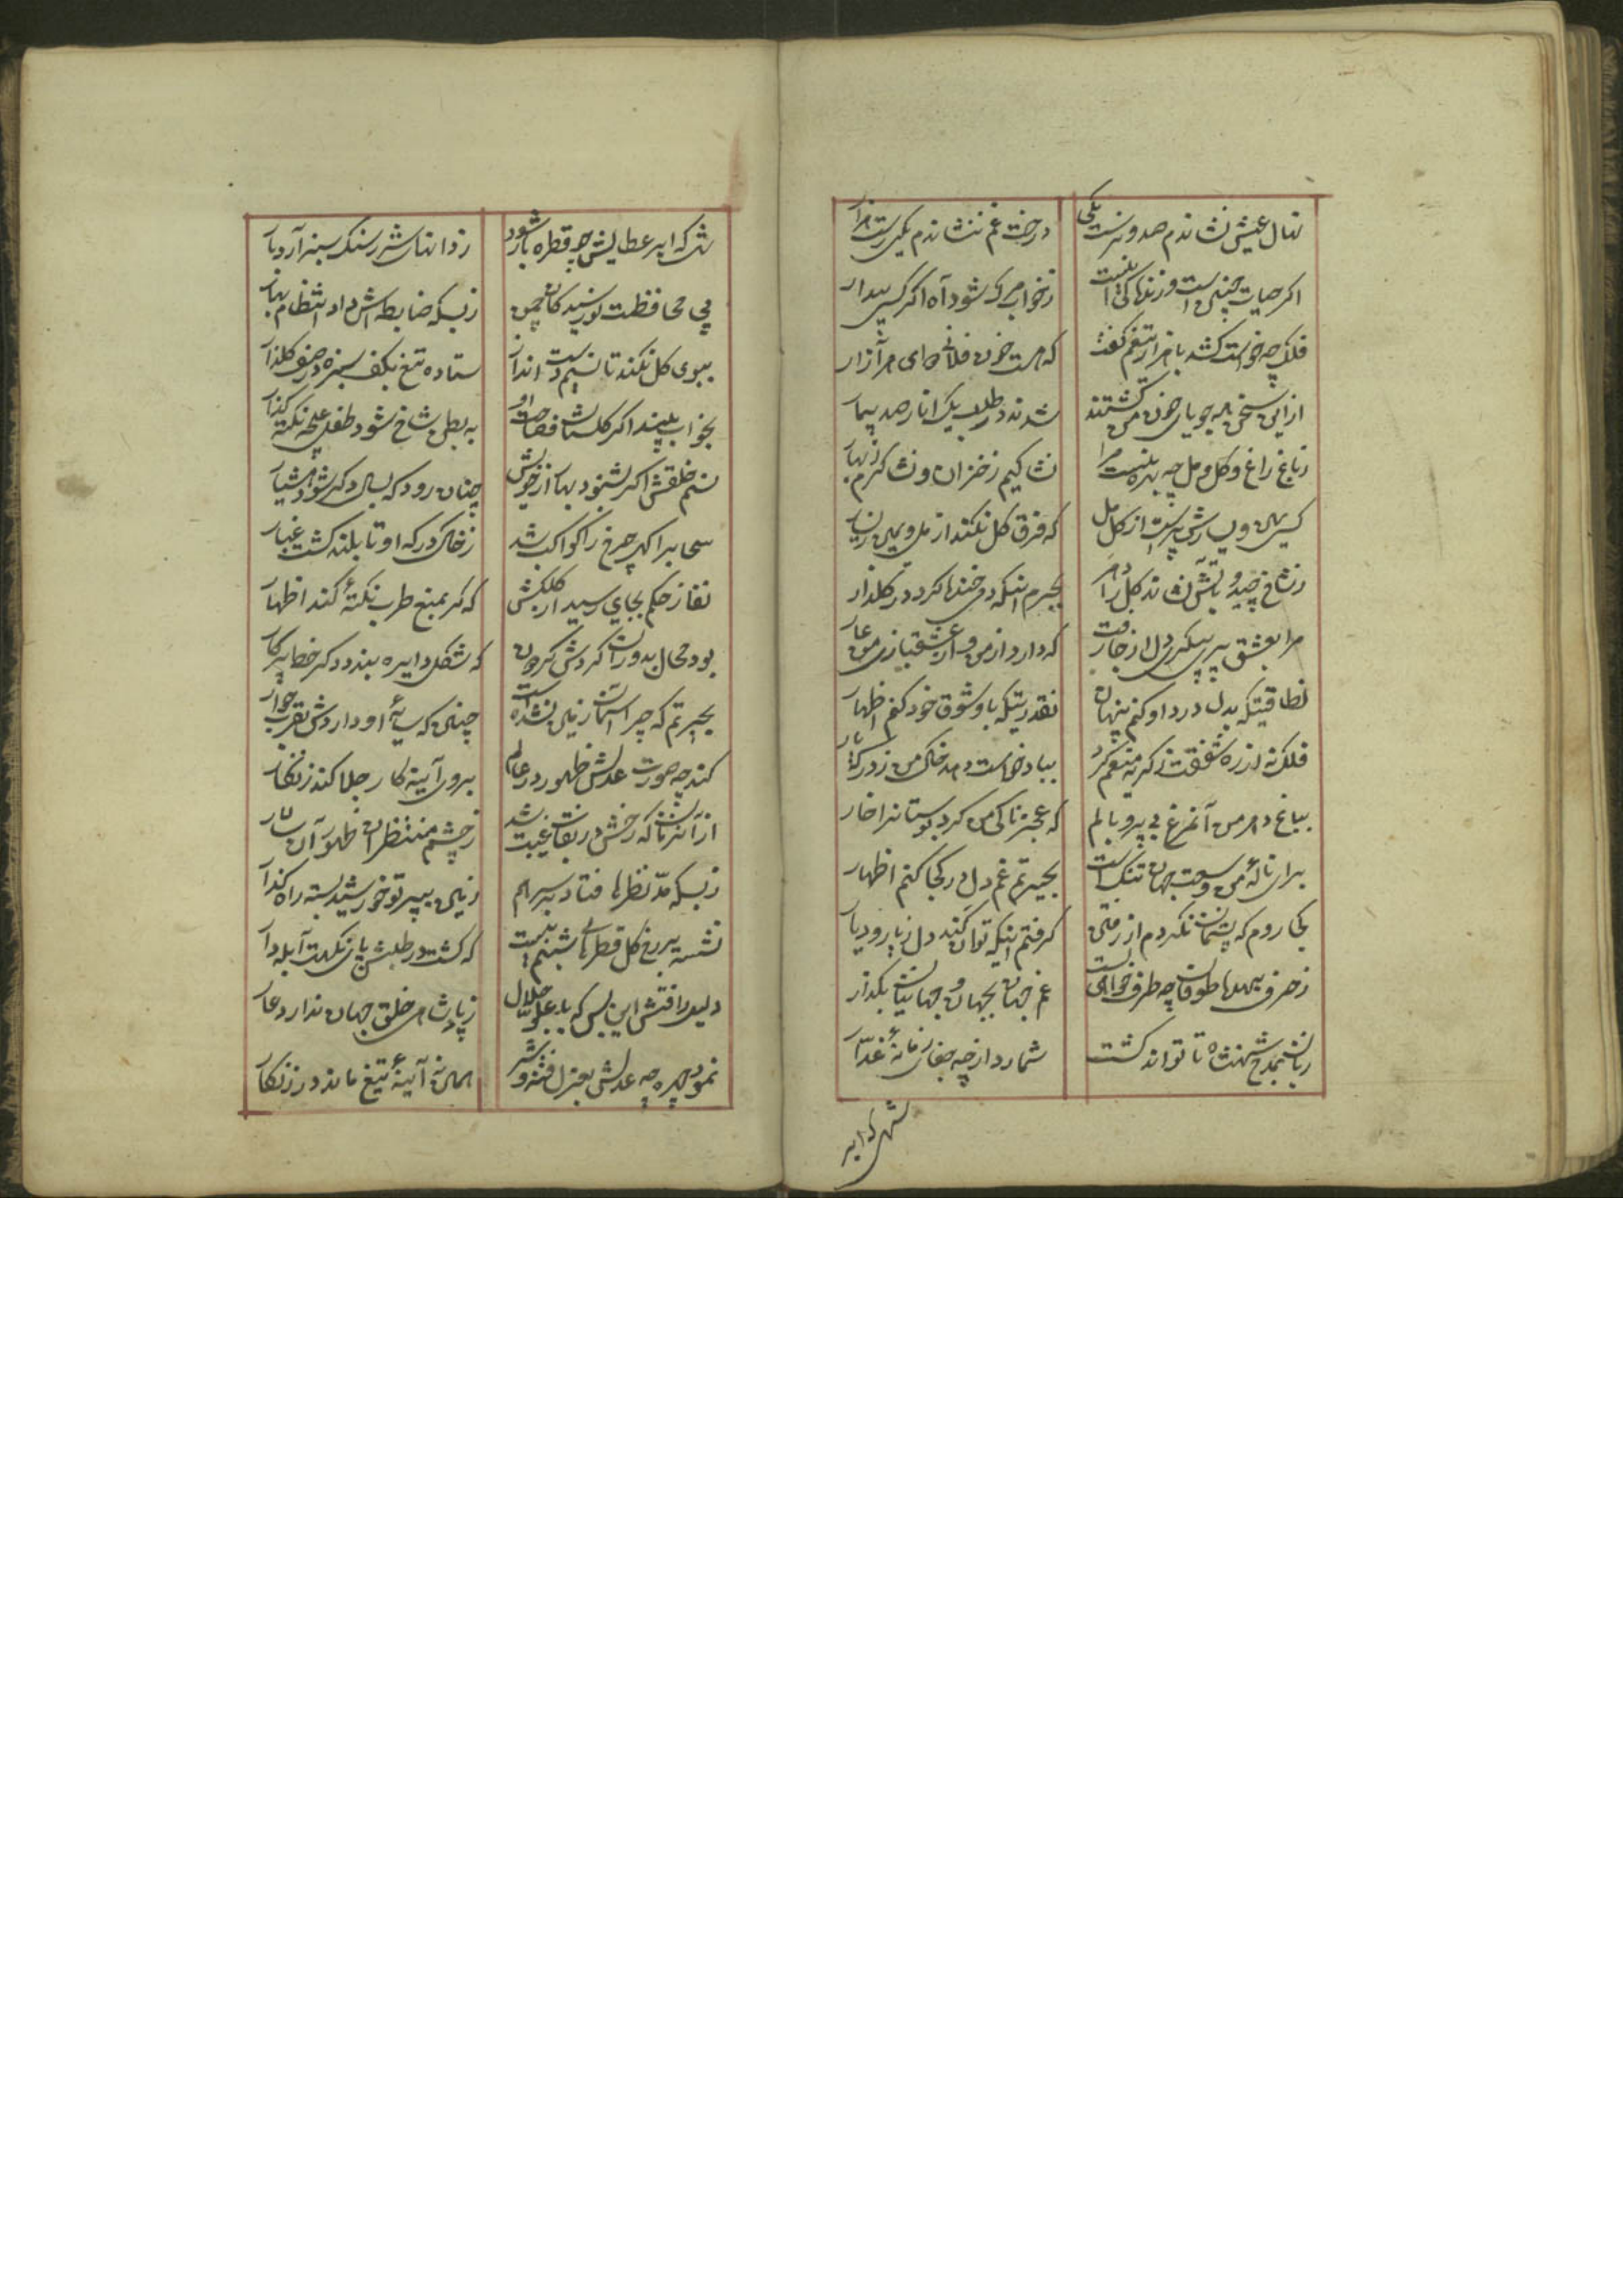 نهال عیش نشاندم صد و نرست یکی
درخت غم ننشاندم یکی رست هزار
اکر حیات چنین است و زندکی اینست
زخواب مرک شود آه اکر کسی بیدار
فلک چه خواست کشد بازار تیغم کفت
که هست خون فلانی مرا آزار
ازین سخن همه جویای خون من کشتند
شدند در طلب یک انار صد بیمار
زباغ و راغ و کل و مل چه بهره نیست مرا
نشاکیم زخزان و نشاکرم زبهار
کسی یمین و یسارش پرست از کل و مل
که فرق کل نکند از مل و یمین ز یسار
زشاخ چید و بآتش نشاند کل را دهر
بجرم اینکه دمی خنده کرد در کلذار
مرا بعشق پری پیکری دل از جا رفت
که دارد از من و از عشقبازی من عار
نطاقتیکه بدل درد او کنم پنهان
نقدرتیکه باو شوق خود کنم اظهار
فلک نه از ره شفقت ز کریه منعم کرد
بباد خواست دهد خاک من ز درکه یار
بباغ دهر من آنمرغ بی پر و بالم
که عجز ناکی من کرد بوستانرا خار
برای نالهٔ من وسعت جهان تنک است
بحیرتم غم دل در کجا کنم اظهار
کجا روم که پشیمان نکردم از رفتن
کرفتم اینکه توان کند دل ز یار و دیار
زحرف بیهده طوفان چه طرف خواهی بست
غم جهان بجهان و جهانیان بکذار
زبان بمدح شهنشاه تا تواند کشت
شمارد از چه جفای زمانهٔ غدّار
شهی که ابر
شهی که ابر عطایش چو قطره بار شود
ز دانهای شرر سنک سبزه آرد بار
پی محافظت نورسیدکان چمن
زبسکه ضابطه اش داد انتظام بهار
ببوی کل نکند تا نسیم دست انداز
ستاده تیغ بکف سبزه در صف کلذار
بخواب بیند اکر کلستان فصاحت او
به بطن شاخ شود طفل غنچه نکته کذار
نسیم خلقش اکر بشنود بهار از خویش
چنان رود که بسال دکر شود هشیار
سحاب را کهر چرخ را کواکب شد
زخاک درکه او تا بلند کشت غبار
نفاذ حکم بجای رسید از کلکش
که کر بمنع طرب نکتهٔ کند اظهار
بود محال بدوران کردش کردون
که شکل دایره بندد دکر خط پرکار
بحیرتم که چرا آسمان زمین نشده است
چنین که سایهٔ او دارد ش بقرب جوار
کند چه صورت عدلش ظهور در عالم
برو آینه کار جلا کند زنکار
از آنزمان که رخش در نقاب غیبت شد
زچشم منتظران ظهور آن سالار
زبسکه مدّ نظرها فتاد بر سر هم
زمین بپرتو خورشید بسته راه کذار
نشسته بر رخ کل قطرهای شبنم نیست
که کشت در طلبش پای نکهت آبله دار
دلیل رافتش این بس که با علوّ جلال
زپادشاهی خلق جهان ندارد عار
نمود چهره چه عدلش بعزل فتنه و شر
همان نه آینهٔ تیغ ماند در زنکار